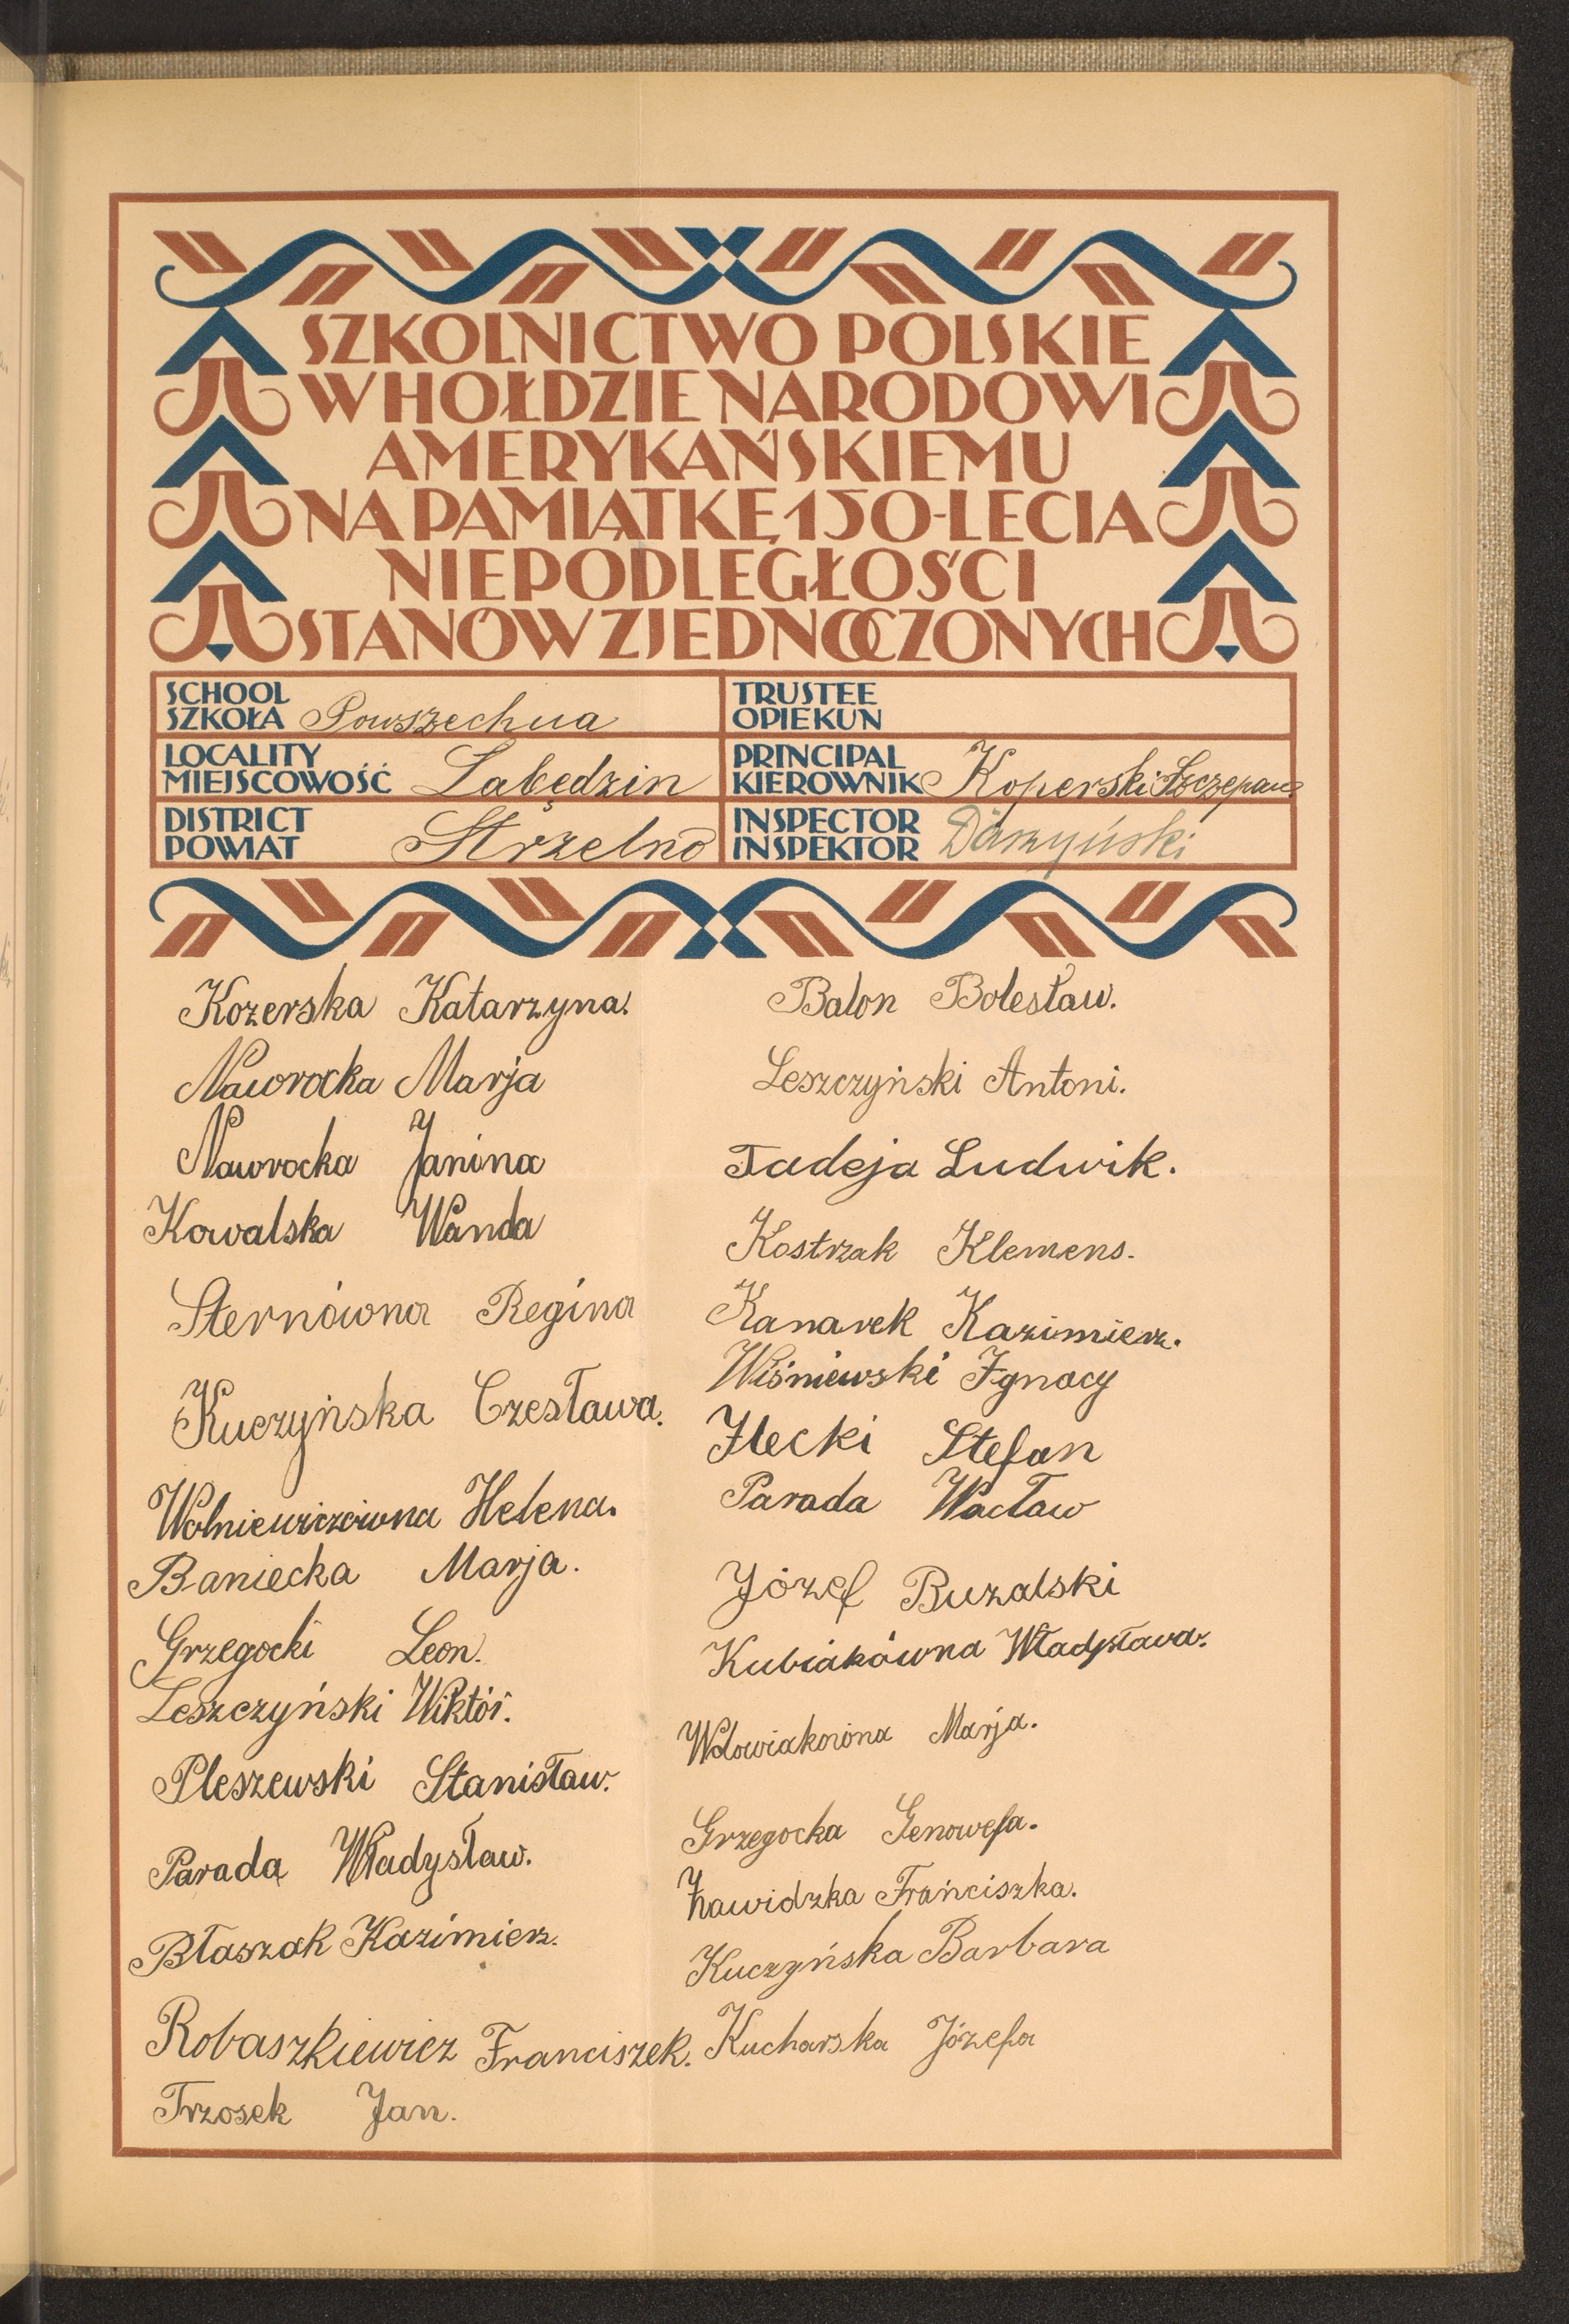 SZKOLNICTWO POLSKIE
W HOŁDZIE NARODOWI
AMERYKAŃSKIEMU
NA PAMIĄTKĘ 150-LECIA
NIEPODLEGŁOŚCI
STANÓW ZJEDNOCZONYCH
SCHOOL
SZKOŁA Powszechna
TRUSTEE
OPIEKUN
LOCALITY
MIEJSCOWOŚĆ Łabędzin
PRINCIPAL
KIEROWNIK Koperski Szczepan
DISTRICT
POWIAT Strzelno
INSPECTOR
INSPEKTOR Daszyński
Kozerska Katarzyna.
Nawrocka Marja
Nawrocka Janina
Kowalska Wanda
Sternówna Regina
Kuczyńska Czesława.
Wolniewiczówna Helena.
Baniecka Marja.
Grzegocki Leon.
Leszczyński Wiktór.
Pleszewski Stanisław.
Parada Władysław.
Błaszak Kazimierz.
Robaszkiewicz Franciszek.
Trzosek Jan.
Balon Bolesław.
Leszczyński Antoni.
Tadeja Ludwik.
Kostrzak Klemens.
Kanarek Kazimierz.
Wiśniewski Ignacy
Ilecki Stefan
Parada Wacław
Józef Buzalski
Kubiakówna Władysława.
Wdowiakówna Marja.
Grzegocka Genowefa.
Zawidzka Franciszka.
Kuczyńska Barbara
Kucharska Józefa